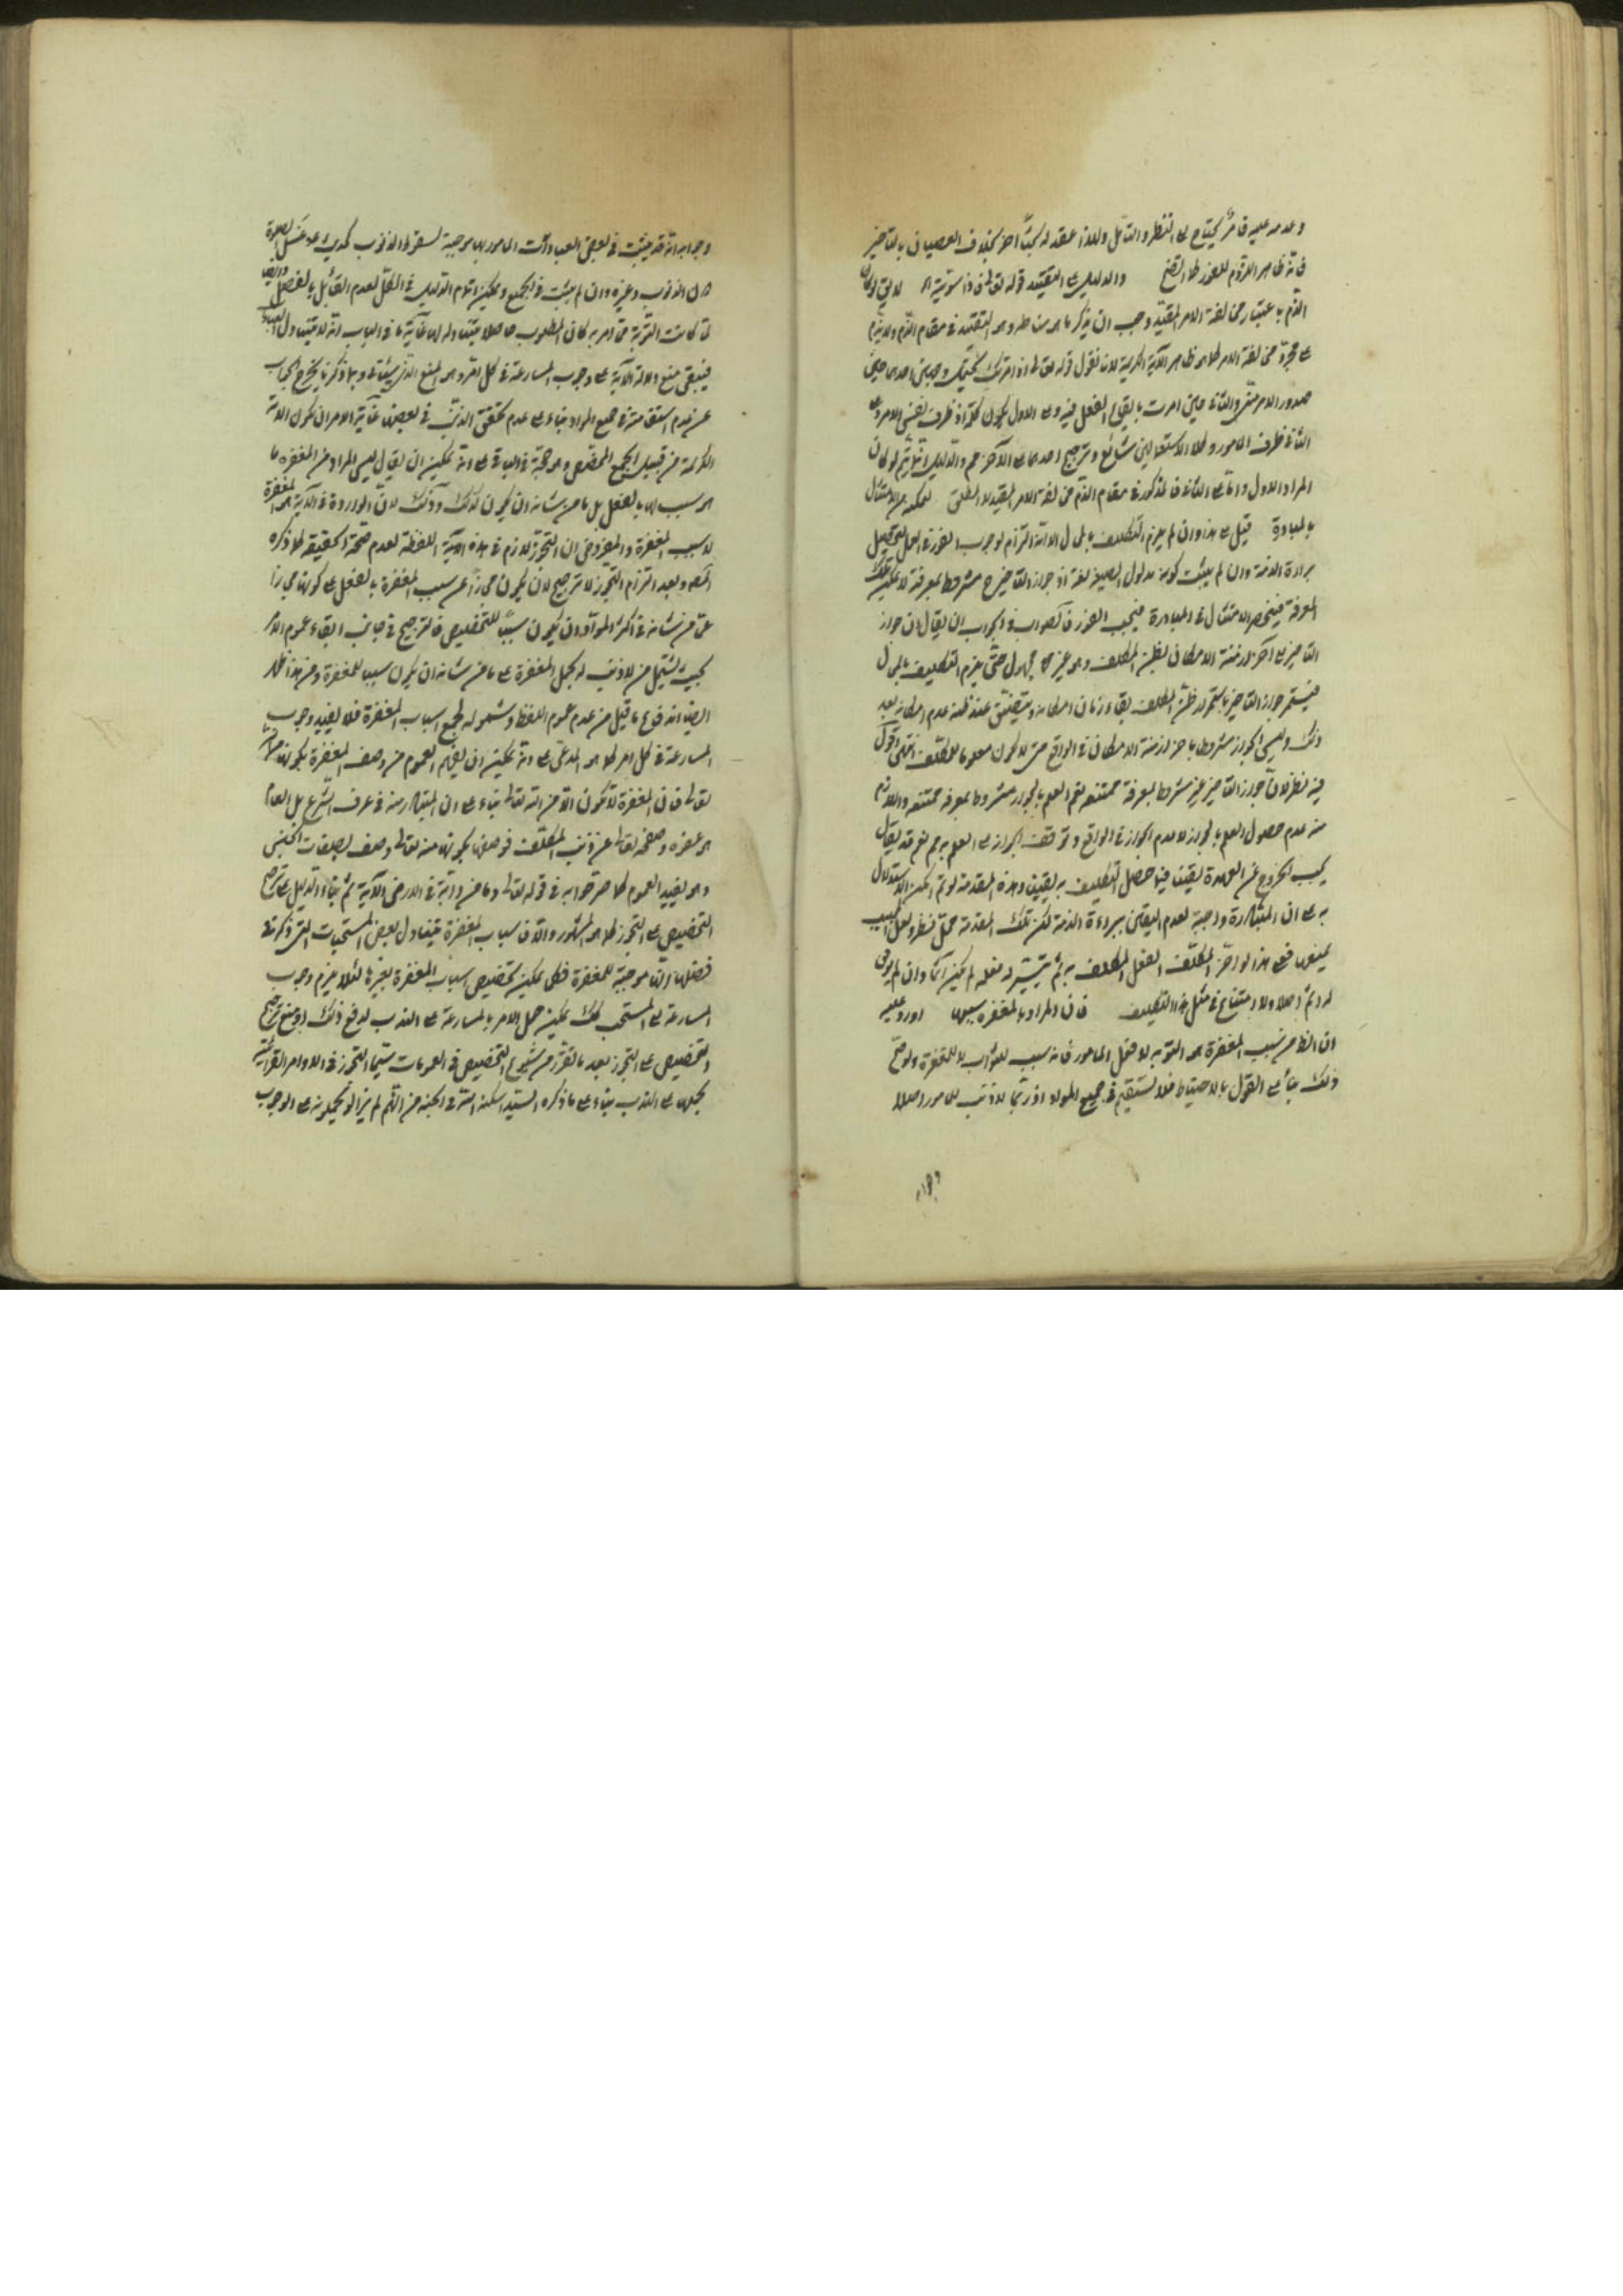 وعدمه عليه فامر يحتاج الى النظر والتأمل ولهذا عقد له بحثا آخر بخلاف العصيان بالتأخير
فانه ظاهر اللزوم للفور والدليل على التقييد قوله تعالى فاذا سويته
الذم باعتبار مخالفة الامر المقيد وجب ان يذكر ما هو مناطه وهو التقييد في مقام الذم
على مجرد مخالفة الامر كما هو ظاهر الآية الكريمة لانا نقول قوله تعالى اذ امرتك يحتمل وجهين احدهما حين
صدور الامر مني والثاني حين امرت بايقاع الفعل فيه وعلى الاول يكون كلمة اذ ظرف لنفس الامر وعلى
الثاني ظرف المأمور وكلا الاستعمالين شائع وترجيح احدهما على الآخر والدليل انما يتم لو كان
المراد الاول واما على الثاني فالمذكور في مقام الذم مخالفة الامر المقيد لا المطلق لتمكنه من الامتثال
بالمبادرة قيل على هذا وان لم يلزم التكليف بالمحال الا انه التزام لوجوب الفور في العمل لتحصيل
براءة الذمة وان لم يثبت كونه مدلول الصيغة لغة اذ جواز التأخير ح مشروط بمعرفة لا يمكن تلك
المعرفة فينحصر الامتثال في المبادرة فيجب الفور فالصواب في الجواب ان يقال ان جواز
التأخير الى آخر ازمنة الامكان بظن المكلف وهو غير مجهول حتى يلزم التكليف بالمحال
فيستمر جواز التأخير باستمرار ظن المكلف بقاء زمان امكانه ويتضيق عند ظنه عدم امكانه بعد
ذلك وليس الجواز مشروطا بآخر ازمنة الامكان في الواقع حتى لا يكون معلوما للمكلف انتهى اقول
فيه نظر لان جواز التأخير غير مشروط بمعرفة ممتنعة نعم العلم بالجواز مشروط بمعرفة ممتنعة واللازم
منه عدم حصول العلم بالجواز لا عدم الجواز في الواقع وتوقف الجواز على العلم به مم نعم قد يقال
يجب الخروج عن العهدة يقينا فيما حصل التكليف به يقينا وهذه المقدمة لو تم امكن الاستدلال
به على ان المبادرة واجبة لعدم اليقين ببراءة الذمة لكن تلك المقدمة محل نظر ولعل المجيب
يمنعها فعلى هذا لو اخر المكلف الفعل المكلف به ثم لم يتيسر له فعله لم يكن آثما وان لم يوف
له اثم اصلا ولا امتناع في مثل هذا التكليف فان المراد بالمغفرة سببها اورد عليه
ان الظ من سبب المغفرة هو التوبة لا فعل المأمور فانه سبب للثواب لا للمغفرة ولو صح
ذلك بناء على القول بالاحباط فلا يستقيم في جميع المواد اذ ربما لا ذنب للمأمور اصلا
وجوابه
وجوابه انه قد يثبت في بعض العبادات المأمور بها موجبة لسقوط الذنوب كما في
من الذنوب وغيره وان لم يثبت في الجميع ويمكن اتمام الدليل في الكل لعدم القائل بالفصل
لما كانت التوبة مما امر به كان المطلوب حاصلا غاية ما في الباب انه لا يتناول
فيبقى منع دلالة الآية على وجوب المسارعة في كل امر وهو المنع الذي سيأتي وبما ذكرنا يخرج الجواب
عن عدم استقامته في جميع المواد بناء على عدم تحقق الذنب في بعضها غاية الامر ان تكون الآية
الكريمة من قبيل الجمع المخصص وهو حجة في الباقي على انه يمكن ان يقال ليس المراد من المغفرة ما
هو سبب لها بالفعل بل ما من شأنه ان يكون كذلك وذلك لان الواردة في الآية هو المغفرة
لا سبب المغفرة والمفروض ان التجوز لازم في هذه اللفظة لعدم صحة الحقيقة كما ذكره
المص وبعد التزام التجوز لا ترجيح لان يكون مجازا عن سبب المغفرة بالفعل على كونها مجازا
عما من شأنه في اكثر المواد ان يكون سببا للتخصيص فالترجيح في جانب ابقاء عموم الامر
بحيث يشتمل من لا ذنب له بحمل المغفرة على ما من شأنه ان يكون سببا للمغفرة ومن هذا ظهر
ايضا اندفاع ما قيل من عدم عموم اللفظ وشموله لجميع اسباب المغفرة فلا يفيد وجوب
المسارعة في كل امر كما هو المدعى على انه يمكن ان يفهم العموم من وصف المغفرة بكونها
تعالى فان المغفرة لا تكون الا من الله تعالى بناء على ان المتبادر منه في عرف الشرع بل العام
هو عفوه وصفحه تعالى عن ذنب المكلف فوصفها بكونها منه تعالى وصف بصفات الجنس
وهو يفيد العموم كما صرحوا به في قوله تعالى وما من دابة في الارض الآية ثم بناء الدليل على ترجيح
التخصيص على التجوز كما هو المشهور والا فاسباب المغفرة يتناول بعض المستحبات التي ذكر في
فضلها انها موجبة للمغفرة فكما يمكن تخصيص اسباب المغفرة بغيرها لئلا يلزم وجوب
المسارعة الى المستحب كذلك يمكن حمل الامر بالمسارعة على الندب لدفع ذلك
التخصيص على التجوز بعد ما تقرر من شيوع التخصيص في العمومات سيما التجوز في الاوامر القرآنية
بحملها على الندب بناء على ما ذكره السيد اسكنه الله في الجنة من انهم لم يزالوا يحملونه على الوجوب